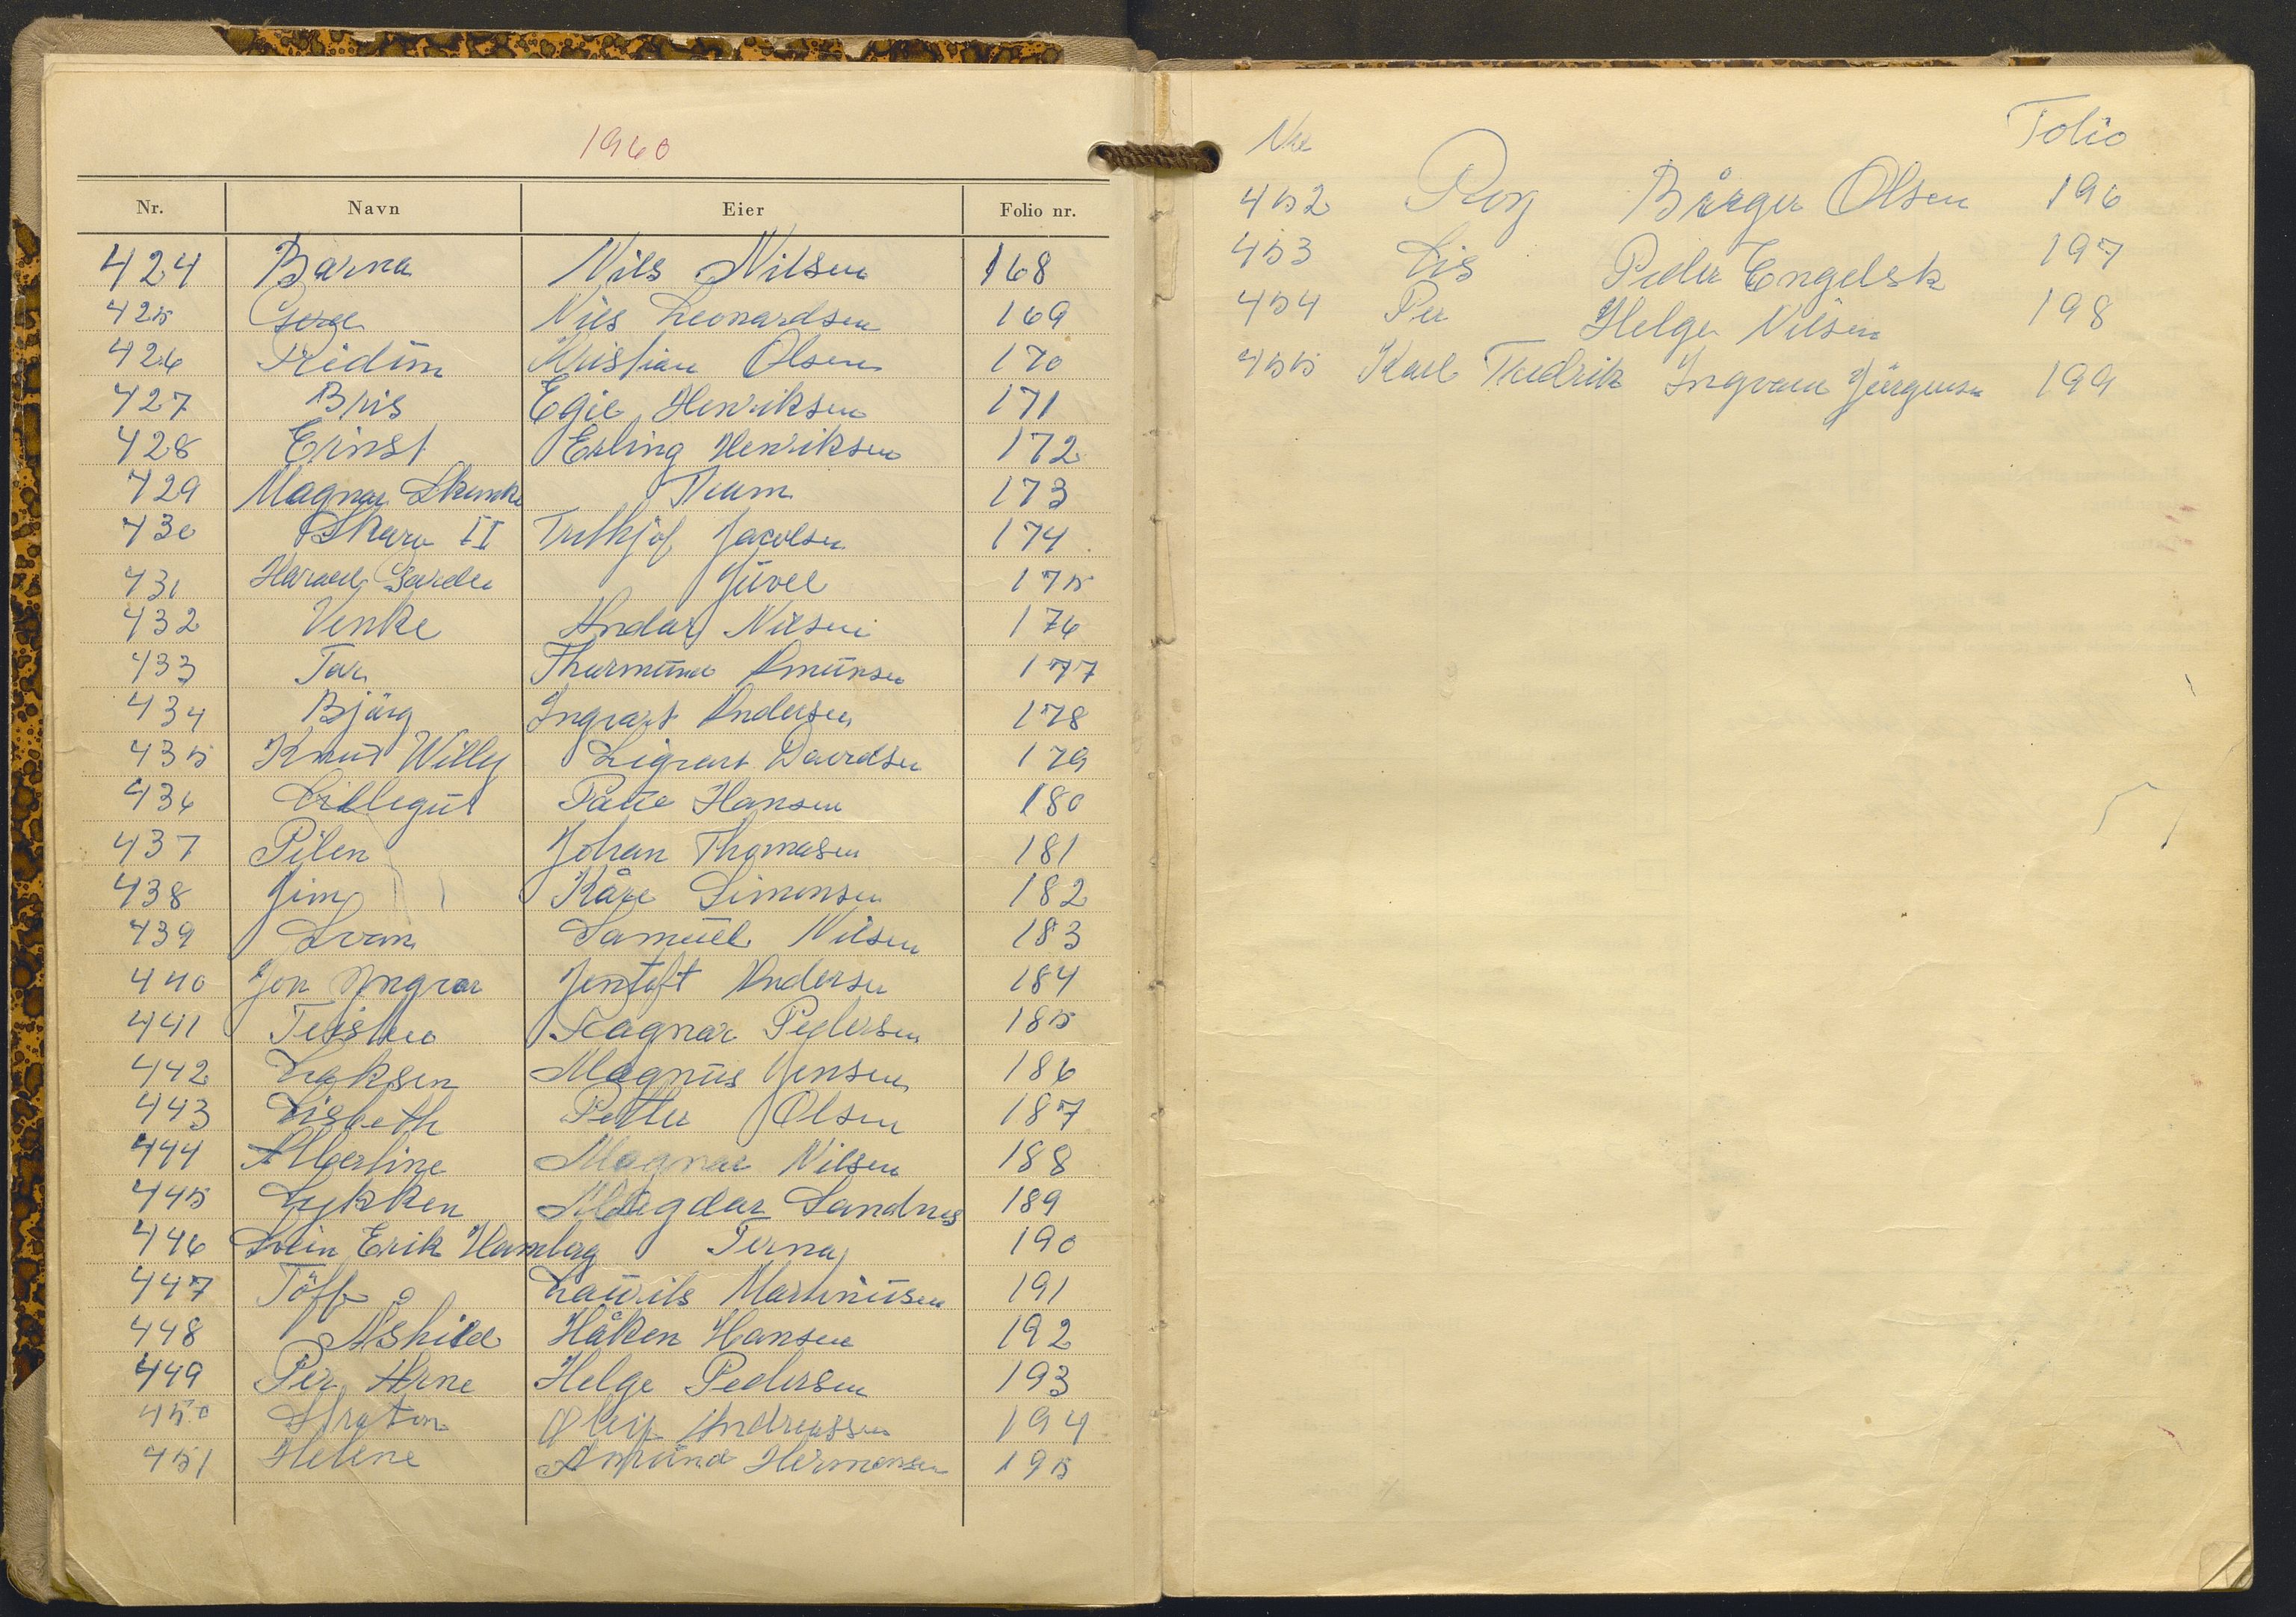 1960
Nr. Navn Eier Folio nr.
424 Barna Nils Nilsen 168
425 Nils Leonardsen 169
426 Kristian Olsen 170
427 Bris Egil Henriksen 171
428 Ernst Erling Henriksen 172
429 Magnar 173
430 II Jacobsen 174
431 Harael Jüvel 175
432 Venke Andar Nilsen 176
433 Tor 177
434 Bjørg Ingvart Andersen 178
435 Knut Willy Sigvart Davidsen 179
436 Lillegut Hansen 180
437 Pilen Johan Thomasen 181
438 Jim Kåre Simonsen 182
439 Svan Samuel Nilsen 183
440 Jon Yngvar Jentoft Andersen 184
441 Ragnar Pedersen 185
442 Laksen Magnus Jensen 186
443 Lisbeth Petter Olsen 187
444 Albertine Magnar Nilsen 188
445 Lykken Magdar Sandnes 189
446 Svein Erik Hamberg Terna 190
447 Laurits Martinusen 191
448 Åshild Håken Hansen 192
449 Per Arne Helge Pedersen 193
450 Oleif Andreassen 194
451 Helene Amund Hermansen 195
Nr Folio
452 Roy Børger Olsen 196
453 Lis Peder Engelsk 197
454 Per Helge Nilsen 198
455 Karl Fredrik Ingvare Jørgensen 199